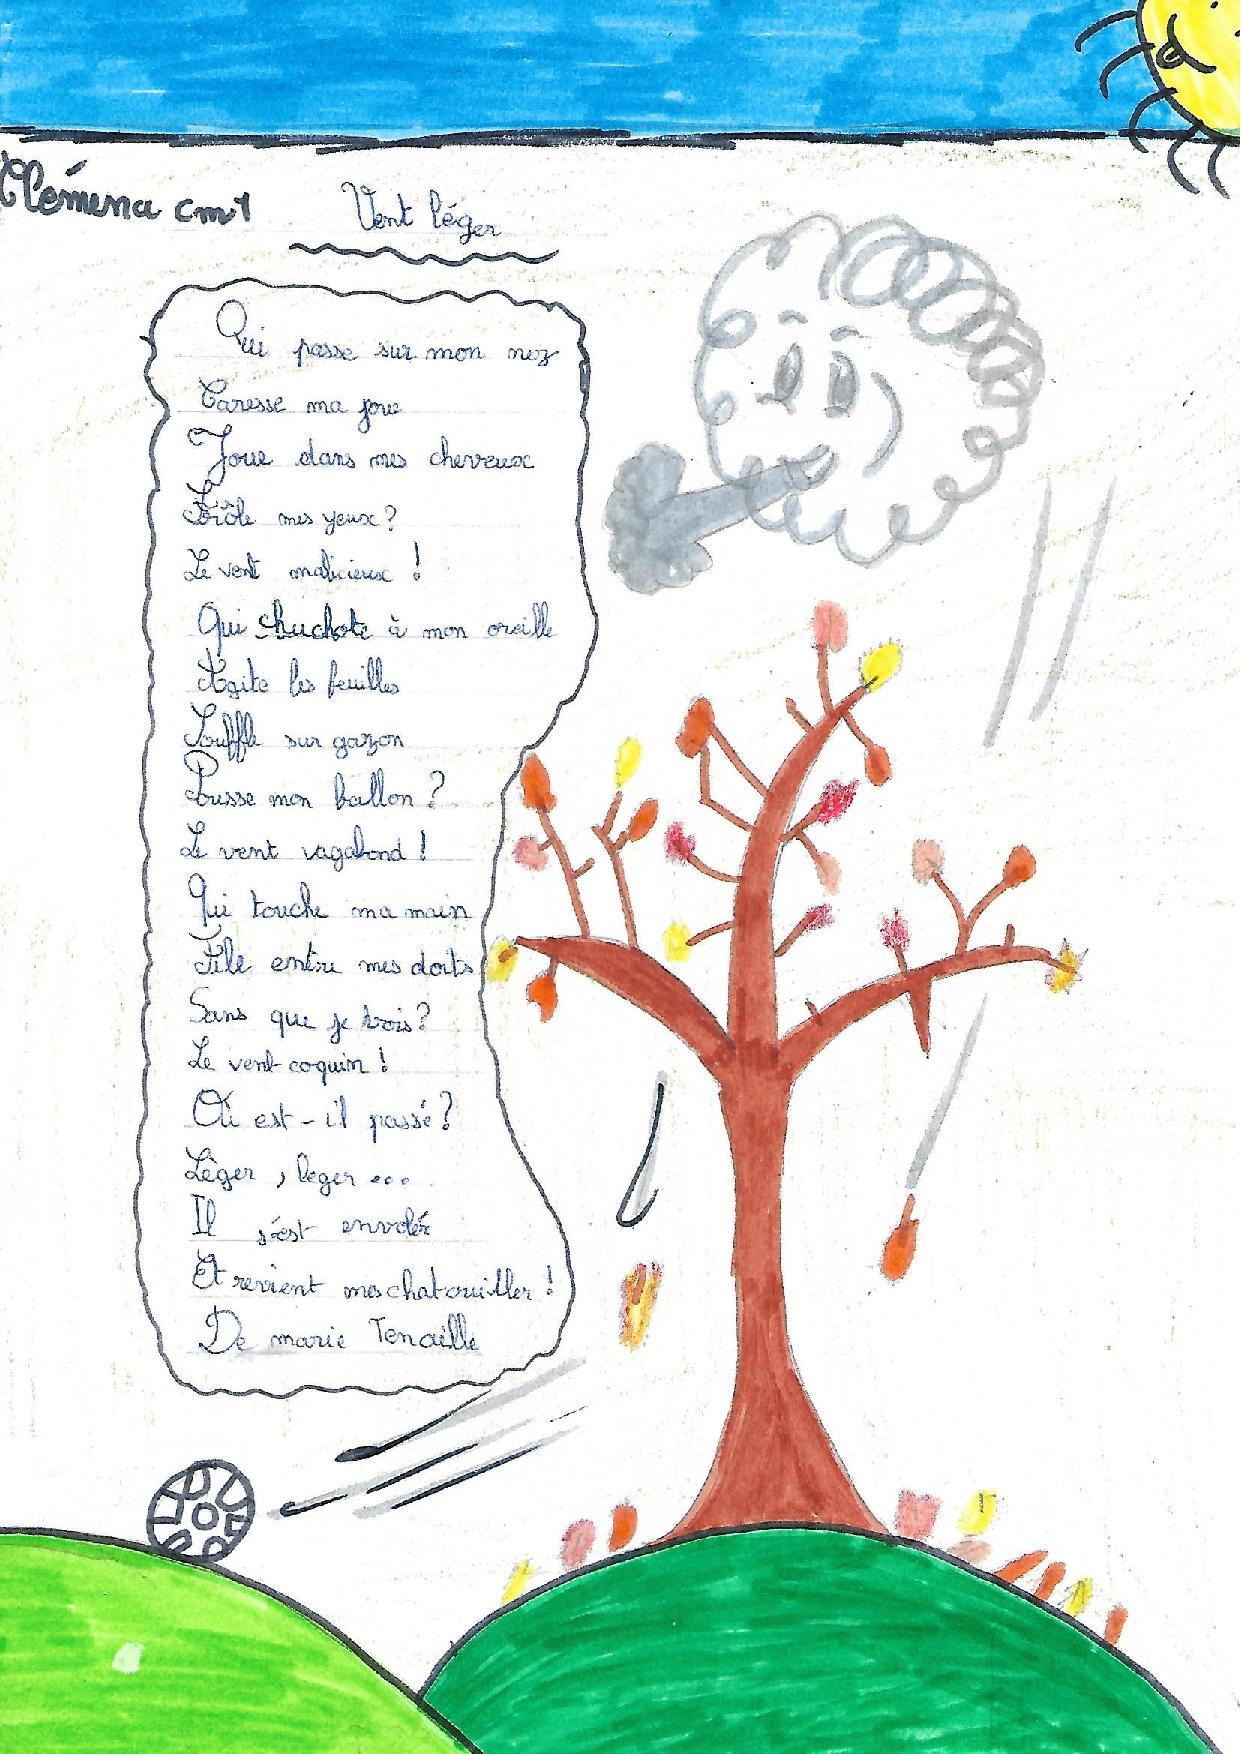 Clémena cm1
Vent léger
Qui passe sur mon nez
Caresse ma joue
Joue dans mes cheveux
Frôle mes yeux ?
Le vent malicieux !
Qui chuchote à mon oreille
Agite les feuilles
Souffle sur gazon
Pousse mon ballon ?
Le vent vagabond !
Qui touche ma main
File entre mes doits
Sans que je vois ?
Le vent coquin !
Où est-il passé ?
Léger , léger ...
Il s'est envolé
Et revient mes chatouiller !
De marie Tenaille